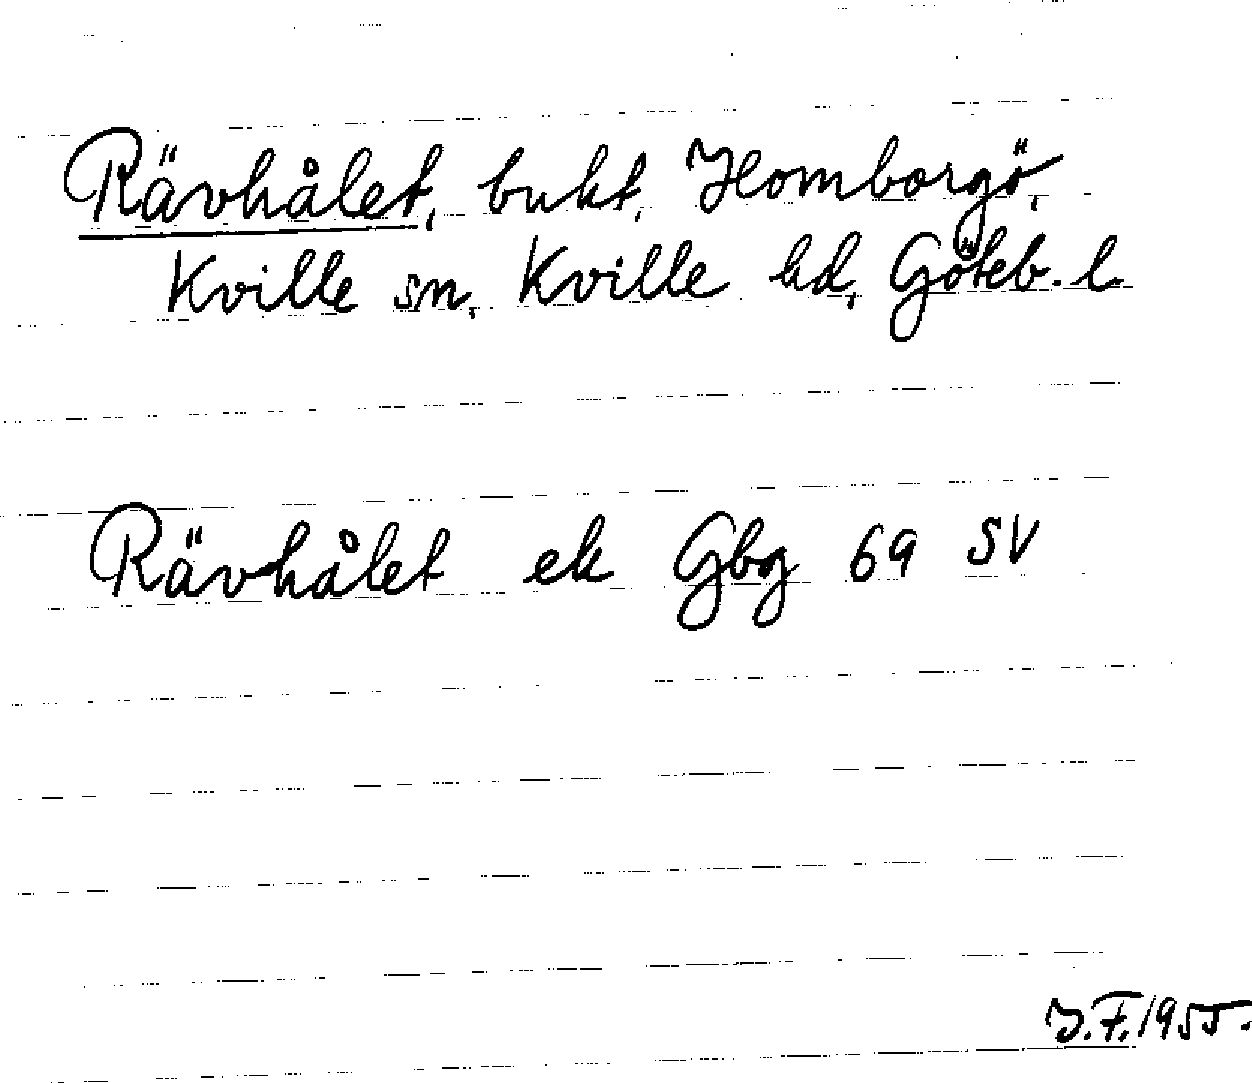 Rävhålet, bukt, Homborgö,
Kville sn, Kville hd, Göteb. l.
Rävhålet ek Gbg 69 SV
J.F. 1955.